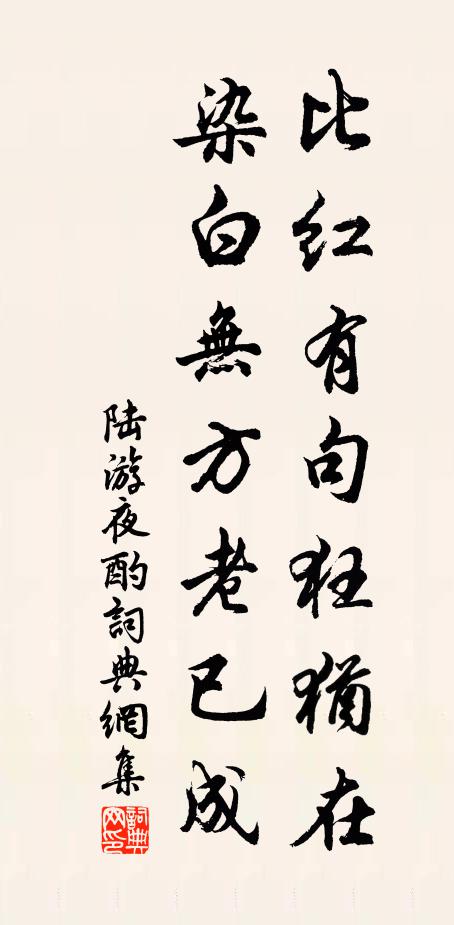 比红有句狂猶在
染白無方老已成
陆游夜酌詞典網集
詞典网印